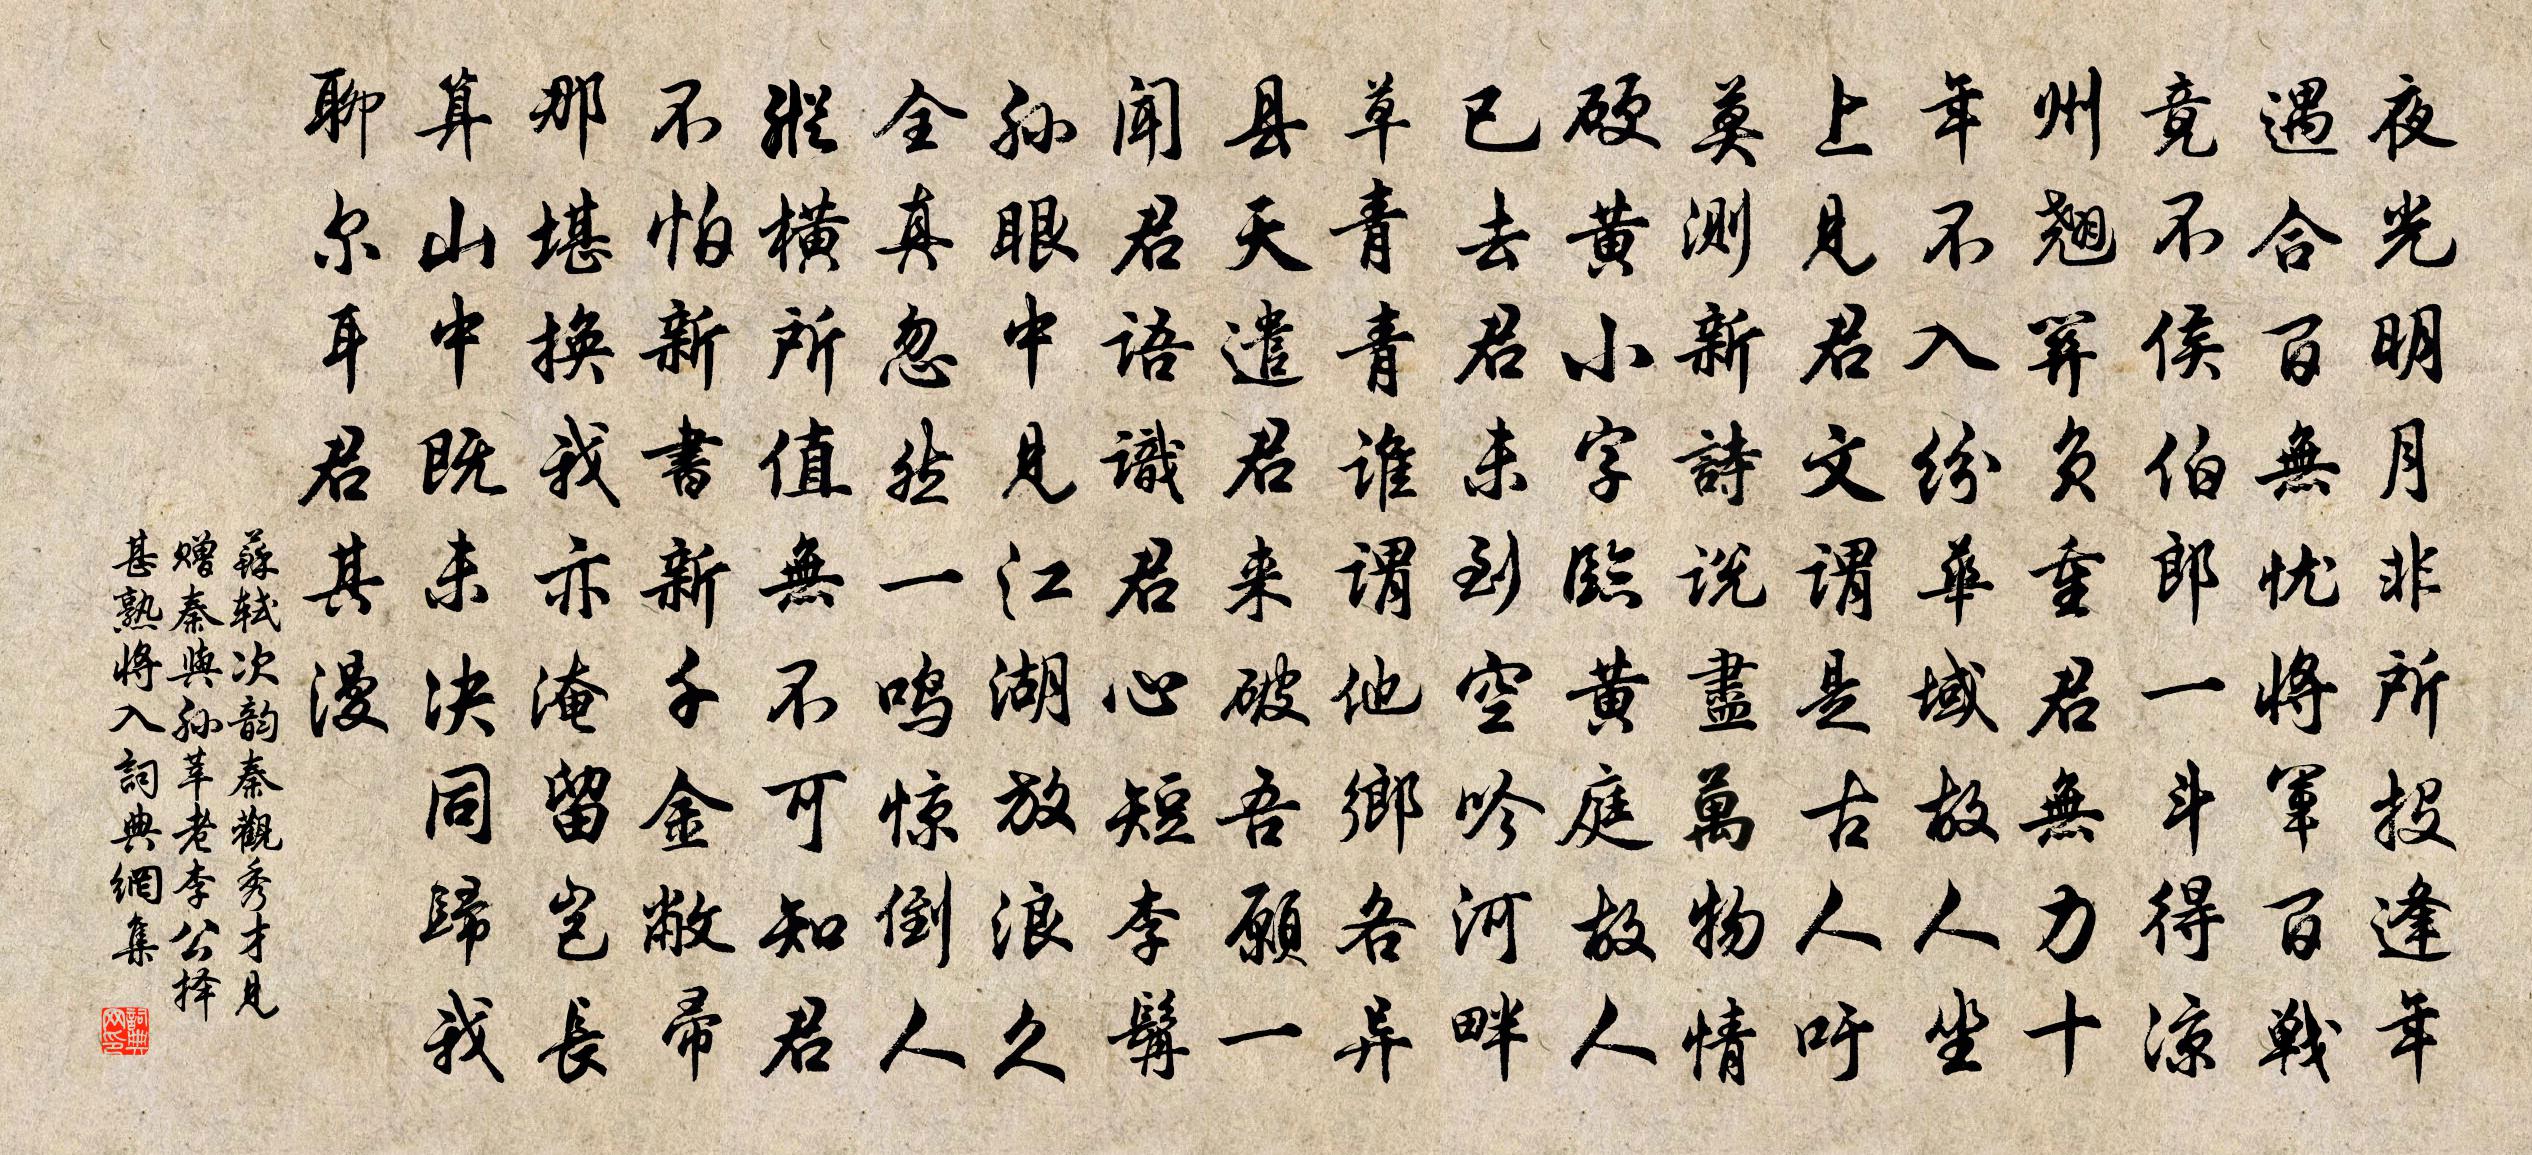 夜光明月非所投逢年
遇合百無忧将軍百戦
竟不侯伯郎一斗得凉
州翘関负重君無力十
年不入纷華域故人坐
上見君文谓是古人吁
莫測新詩说盡萬物情
硬黄小字臨黄庭故人
已去君未到空吟河畔
草青青谁谓他鄉各异
县天遣君来破吾願一
闻君語識君心短李髯
孙眼中見江湖放浪久
全真忽然一鸣惊倒人
縱横所值無不可知君
不怕新書新千金敝帚
那堪换我亦淹留岂長
算山中既未决同歸我
聊尔耳君其漫
蘇轼次韵秦觀秀才見
赠秦與孙莘老李公择
甚熟将入詞典網集
詞典网印